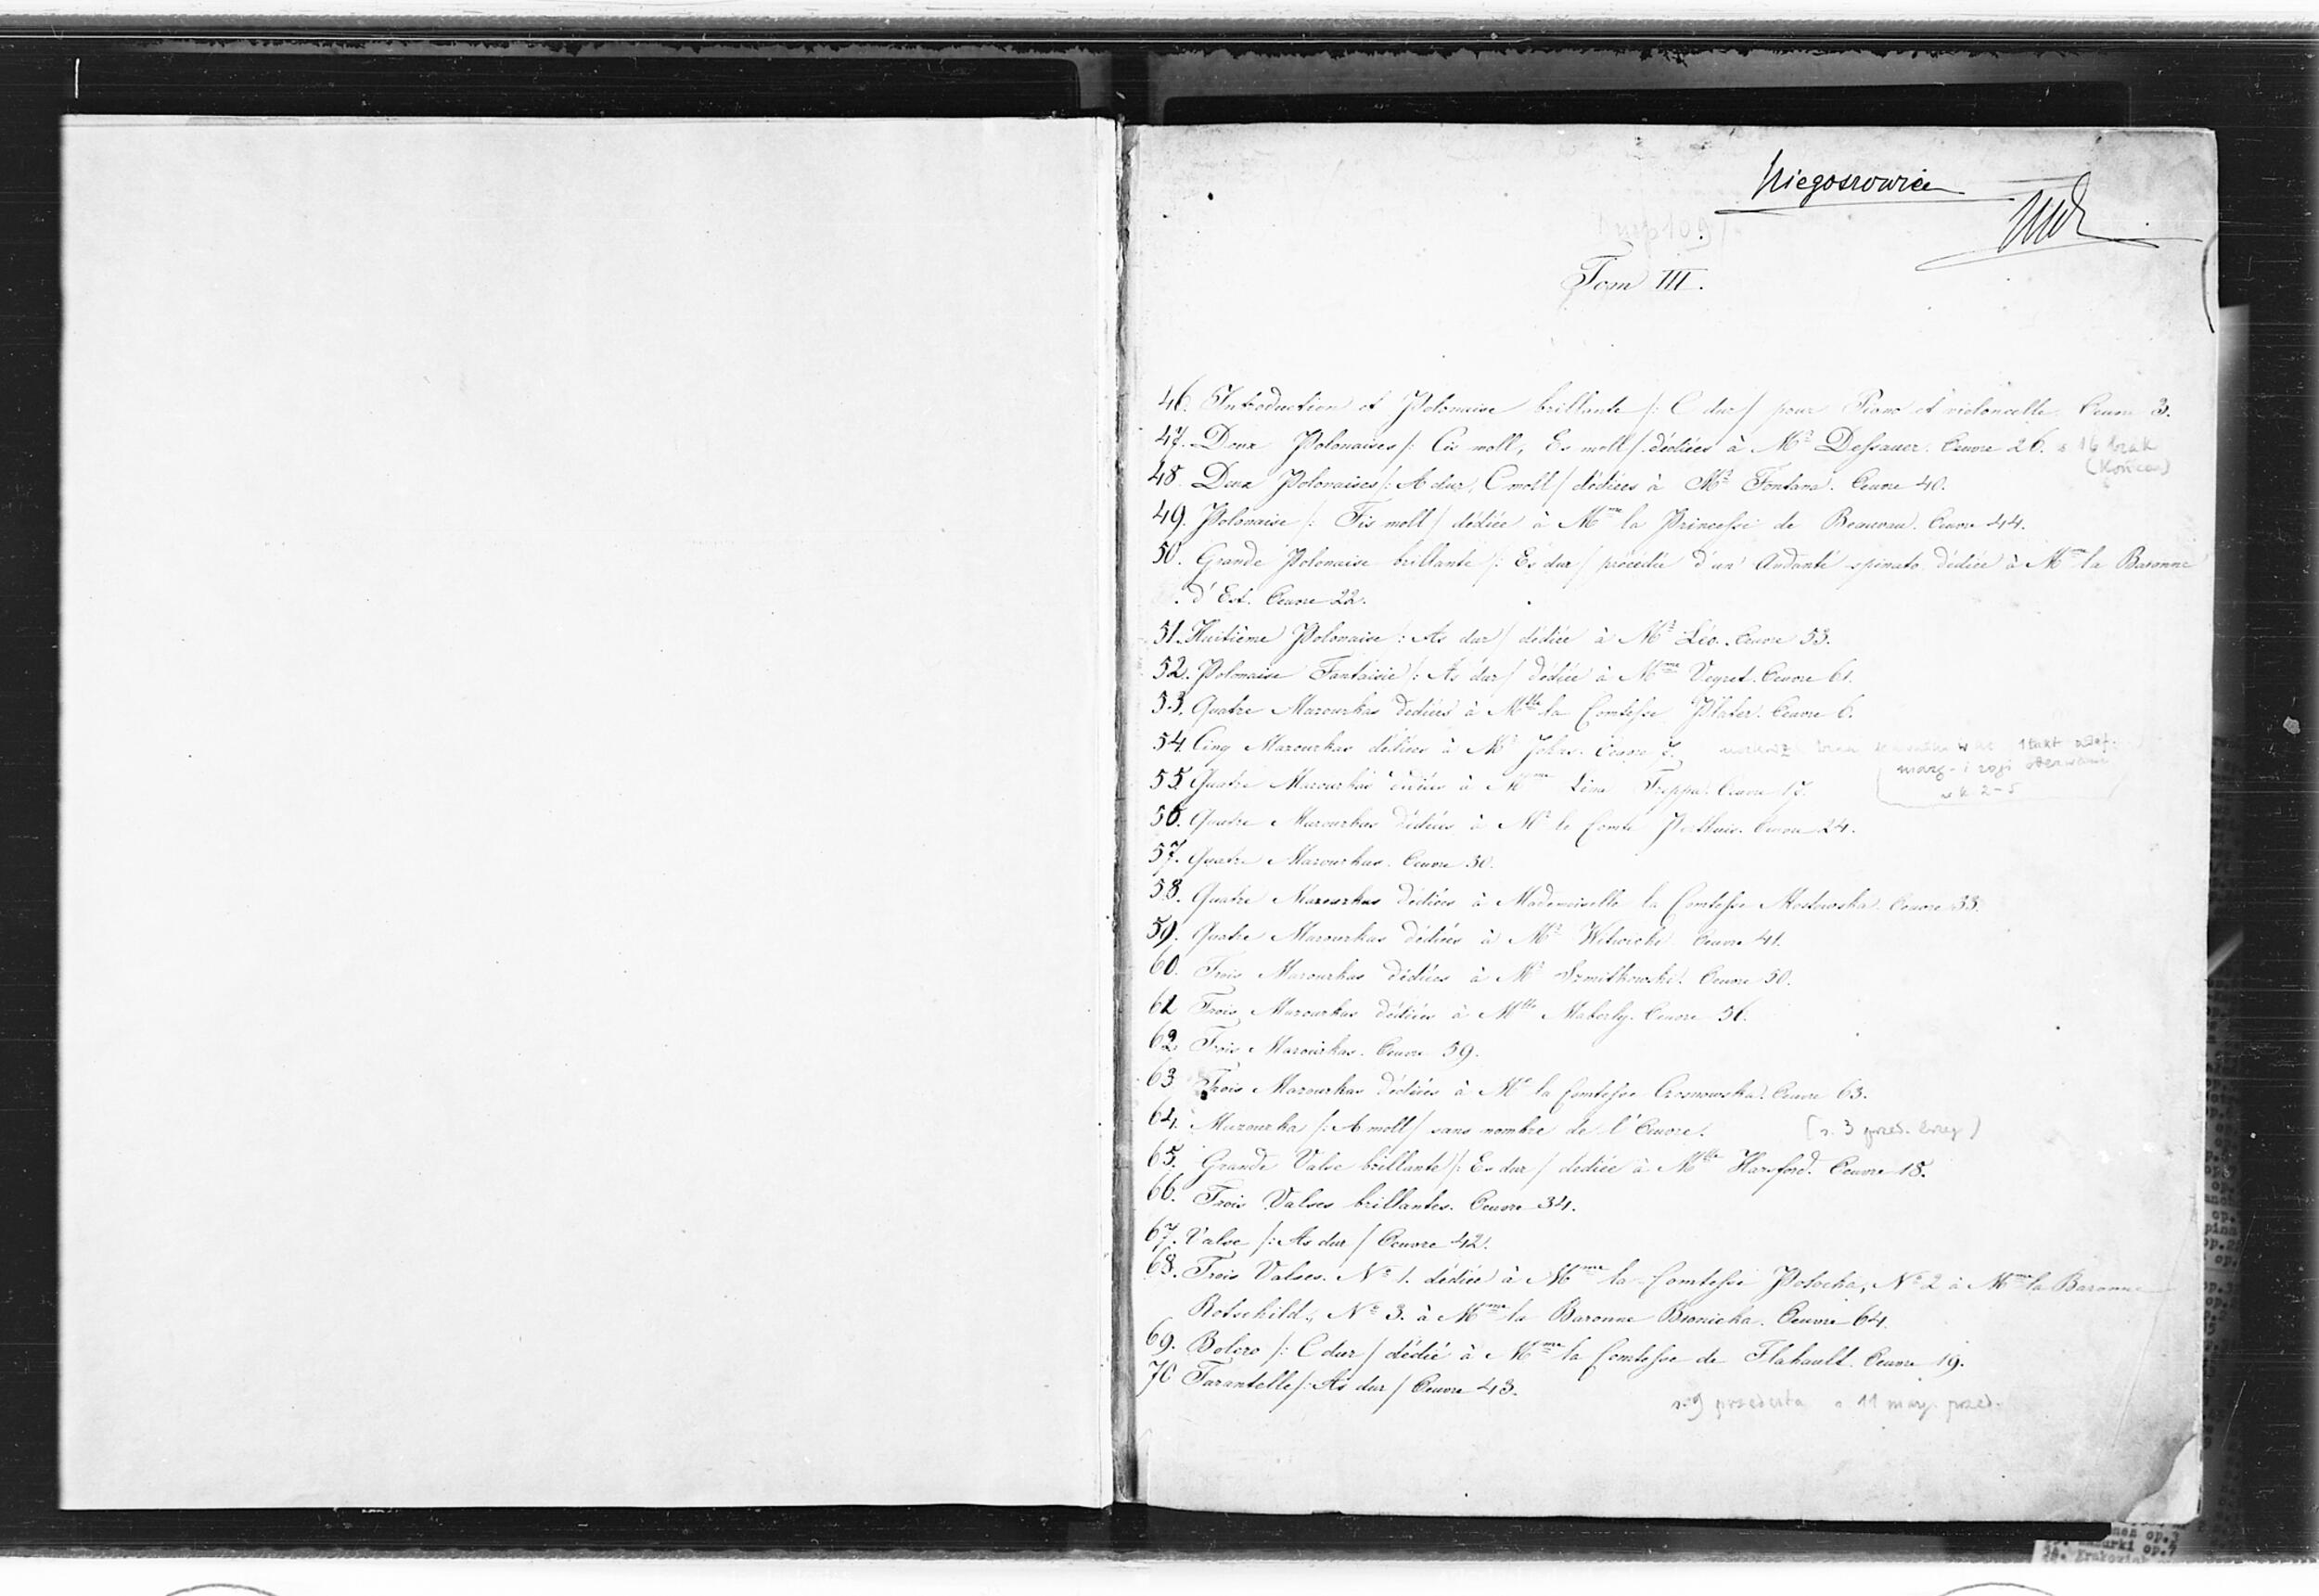 Niegoszowice
Tom III.
46. Introduction et Polonaise brillante /: C dur / pour Piano et violoncelle. Oeuvre 3.
47. Deux Polonaises /: Cis moll, Es moll / dédiées à Mr Dessauer. Oeuvre 26. s 16 brak
(końca)
48. Deux Polonaises /: A dur, C moll / dédiées à Mr Fontana. Oeuvre 40.
49. Polonaise /: Fis moll / dédiée à Mme la Princesse de Beauvau. Oeuvre 44.
50. Grande Polonaise brillante /: Es dur / précédée d'un Andante spinato dédiée à Mme la Baronne
d'Est. Oeuvre 22.
51. Huitième Polonaise /: As dur / dédiée à Mr Léo. Oeuvre 53.
52. Polonaise Fantaisie /: As dur / dédiée à Mme Veyret. Oeuvre 61.
53. Quatre Mazourkas dediées à Mlle la Comtesse Plater. Oeuvre 6.
54. Cinq Mazourkas dédiées à Mr Johns. Oeuvre 7. brak 1 takt
marg. i rogi oberwane
s k 2-5
55. Quatre Mazourkas dédiées à Mme Lina Freppa. Oeuvre 17.
56. Quatre Mazourkas dédiées à Mr le Comte Perthuis. Oeuvre 24.
57. Quatre Mazourkas. Oeuvre 30.
58. Quatre Mazourkas dédiées à Mademoiselle la Comtesse Mostowska. Oeuvre 33.
59. Quatre Mazourkas dédiées à Mr Witwicki. Oeuvre 41.
60. Trois Mazourkas dédiées à Mr Szmitkowski. Oeuvre 50.
61. Trois Mazourkas dédiées à Mlle Maberly. Oeuvre 56.
62. Trois Mazourkas. Oeuvre 59.
63. Trois Mazourkas dédiées à Me la Comtesse Czosnowska. Oeuvre 63.
64. Mazourka /: A moll / sans nombre de l'Oeuvre. (s. 3 przed. brzeg)
65. Grande Valse brillante /: Es dur / dediée à Mlle Harsford. Oeuvre 18.
66. Trois Valses brillantes. Oeuvre 34.
67. Valse /: As dur / Oeuvre 42.
68. Trois Valses. No 1. dédiée à Mme la Comtesse Potocka, No 2 à Mme la Baronne
Rotschild, No 3. à Mme la Baronne Bronicka. Oeuvre 64.
69. Bolero /: C dur / dédié à Mme la Comtesse de Flahault. Oeuvre 19.
70 Tarantelle /: As dur / Oeuvre 43.
s. 9 przedarta s 11 marg. przed.